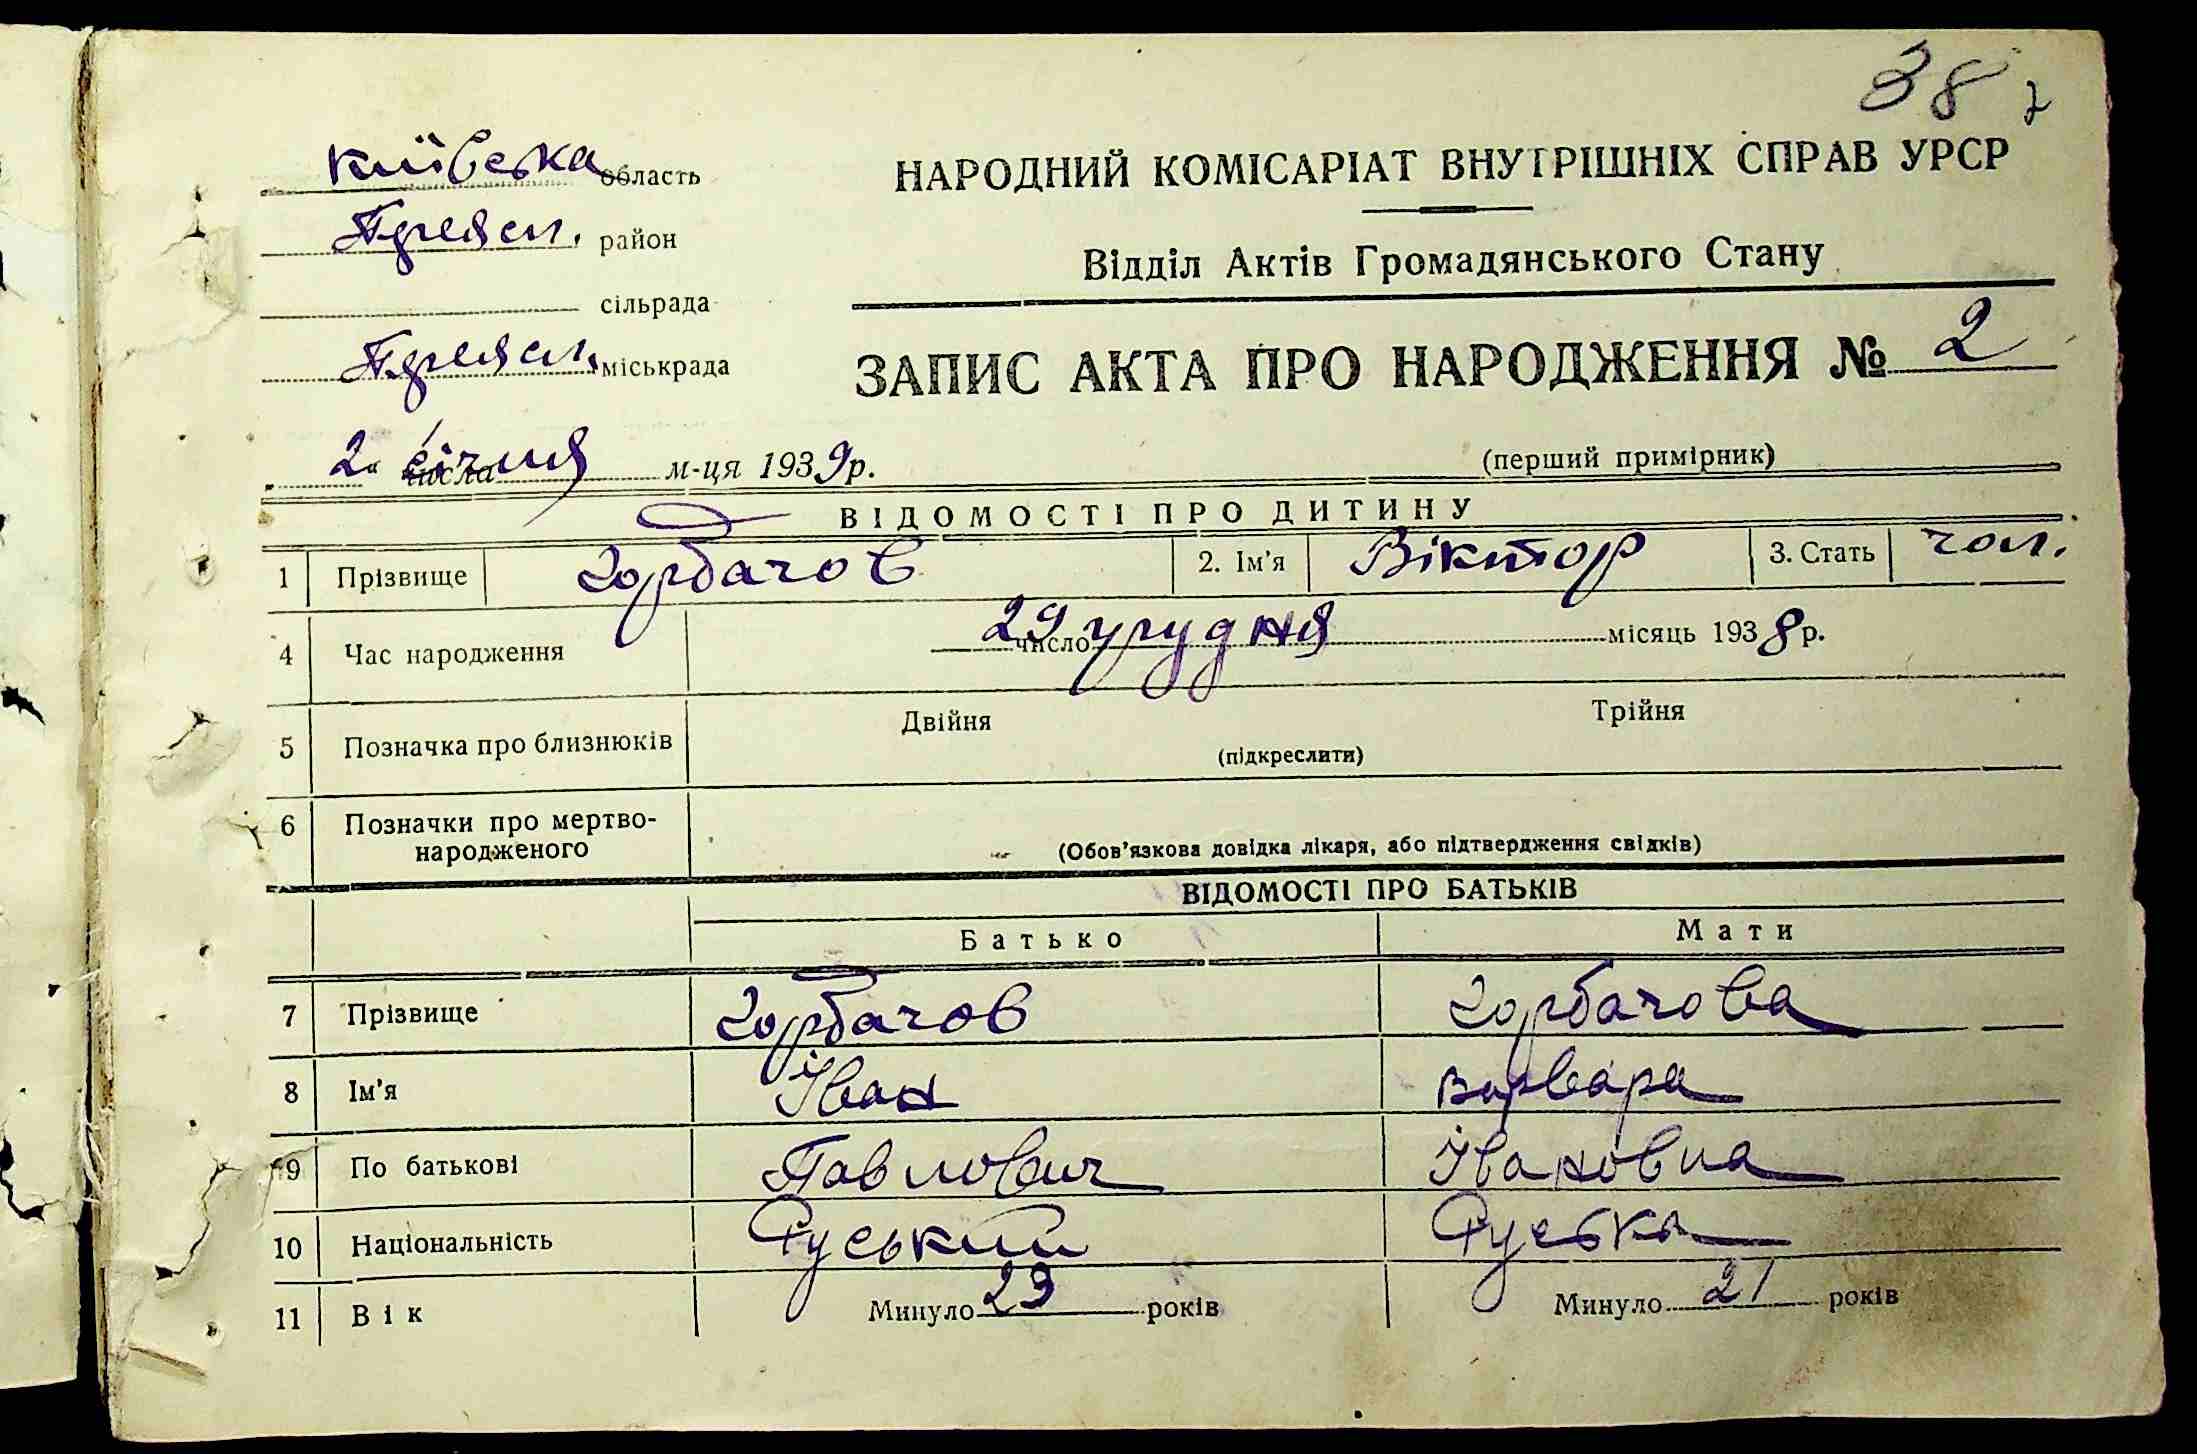 38
2
Київська область
район
сільрада
міськрада
НАРОДНИЙ КОМІСАРІАТ ВНУТРІШНІХ СПРАВ УРСР
Відділ Актів Громадянського Стану
ЗАПИС АКТА ПРО НАРОДЖЕННЯ № 2
2 " числа січня м-ця 1939 р.
(перший примірник)
ВІДОМОСТІ ПРО ДИТИНУ
1 Прізвище Горбачов 2. Ім'я Віктор 3. Стать чол.
4 Час народження 29 число грудня місяць 1938 р.
5 Позначка про близнюків Двійня Трійня
(підкреслити)
6 Позначки про мертво-
народженого
(Обов'язкова довідка лікаря, або підтвердження свідків)
ВІДОМОСТІ ПРО БАТЬКІВ
Батько Мати
7 Прізвище Горбачов Горбачова
8 Ім'я Іван Варвара
9 По батькові Павлович Івановна
10 Національність Руський Руська
11 Вік Минуло 29 років Минуло 21 років